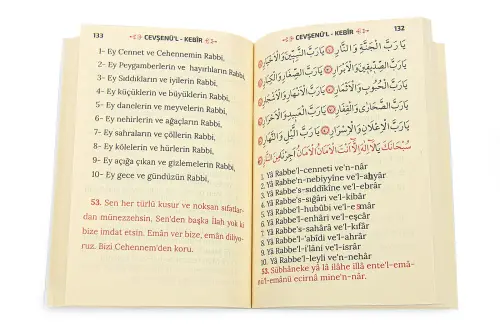 CEVŞENÜ'L - KEBÎR 132
يَا رَبَّ الْجَنَّةِ وَالنَّارِ يَا رَبَّ النَّبِيِّينَ وَالْأَخْيَارِ
يَا رَبَّ الصِّدِّيقِينَ وَالْأَبْرَارِ يَا رَبَّ الصِّغَارِ وَالْكِبَارِ
يَا رَبَّ الْحُبُوبِ وَالْأَثْمَارِ يَا رَبَّ الْأَنْهَارِ وَالْأَشْجَارِ
يَا رَبَّ الصَّحَارَى وَالْقِفَارِ يَا رَبَّ الْعَبِيدِ وَالْأَحْرَارِ
يَا رَبَّ الْإِعْلَانِ وَالْإِسْرَارِ يَا رَبَّ اللَّيْلِ وَالنَّهَارِ
سُبْحَانَكَ يَا لَا إِلٰهَ إِلَّا أَنْتَ الْأَمَانُ الْأَمَانُ أَجِرْنَا مِنَ النَّارِ
1. Yâ Rabbe'l-cenneti ve'n-nâr
2. Yâ Rabbe'n-nebiyyîne ve'l-ahyâr
3. Yâ Rabbe's-sıddîkîne ve'l-ebrâr
4. Yâ Rabbe's-sıgâri ve'l-kibâr
5. Yâ Rabbe'l-hubûbi ve'l-esmâr
6. Yâ Rabbe'l-enhâri ve'l-eşcâr
7. Yâ Rabbe's-sahârâ ve'l-kıfâr
8. Yâ Rabbe'l-'abîdi ve'l-ahrâr
9. Yâ Rabbe'l-i'lâni ve'l-isrâr
10. Yâ Rabbe'l-leyli ve'n-nehâr
53. Sübhâneke yâ lâ ilâhe illâ ente'l-emâ-
nü'l-emânü ecirnâ mine'n-nâr.
133 CEVŞENÜ'L - KEBÎR
1- Ey Cennet ve Cehennemin Rabbi,
2- Ey Peygamberlerin ve hayırlıların Rabbi,
3- Ey Sıddıkların ve iyilerin Rabbi,
4- Ey küçüklerin ve büyüklerin Rabbi,
5- Ey danelerin ve meyvelerin Rabbi,
6- Ey nehirlerin ve ağaçların Rabbi,
7- Ey sahraların ve çöllerin Rabbi,
8- Ey kölelerin ve hürlerin Rabbi,
9- Ey açığa çıkan ve gizlemelerin Rabbi,
10- Ey gece ve gündüzün Rabbi,
53. Sen her türlü kusur ve noksan sıfatlar-
dan münezzehsin, Sen'den başka İlah yok ki
bize imdat etsin. Emân ver bize, emân diliyo-
ruz. Bizi Cehennem'den koru.